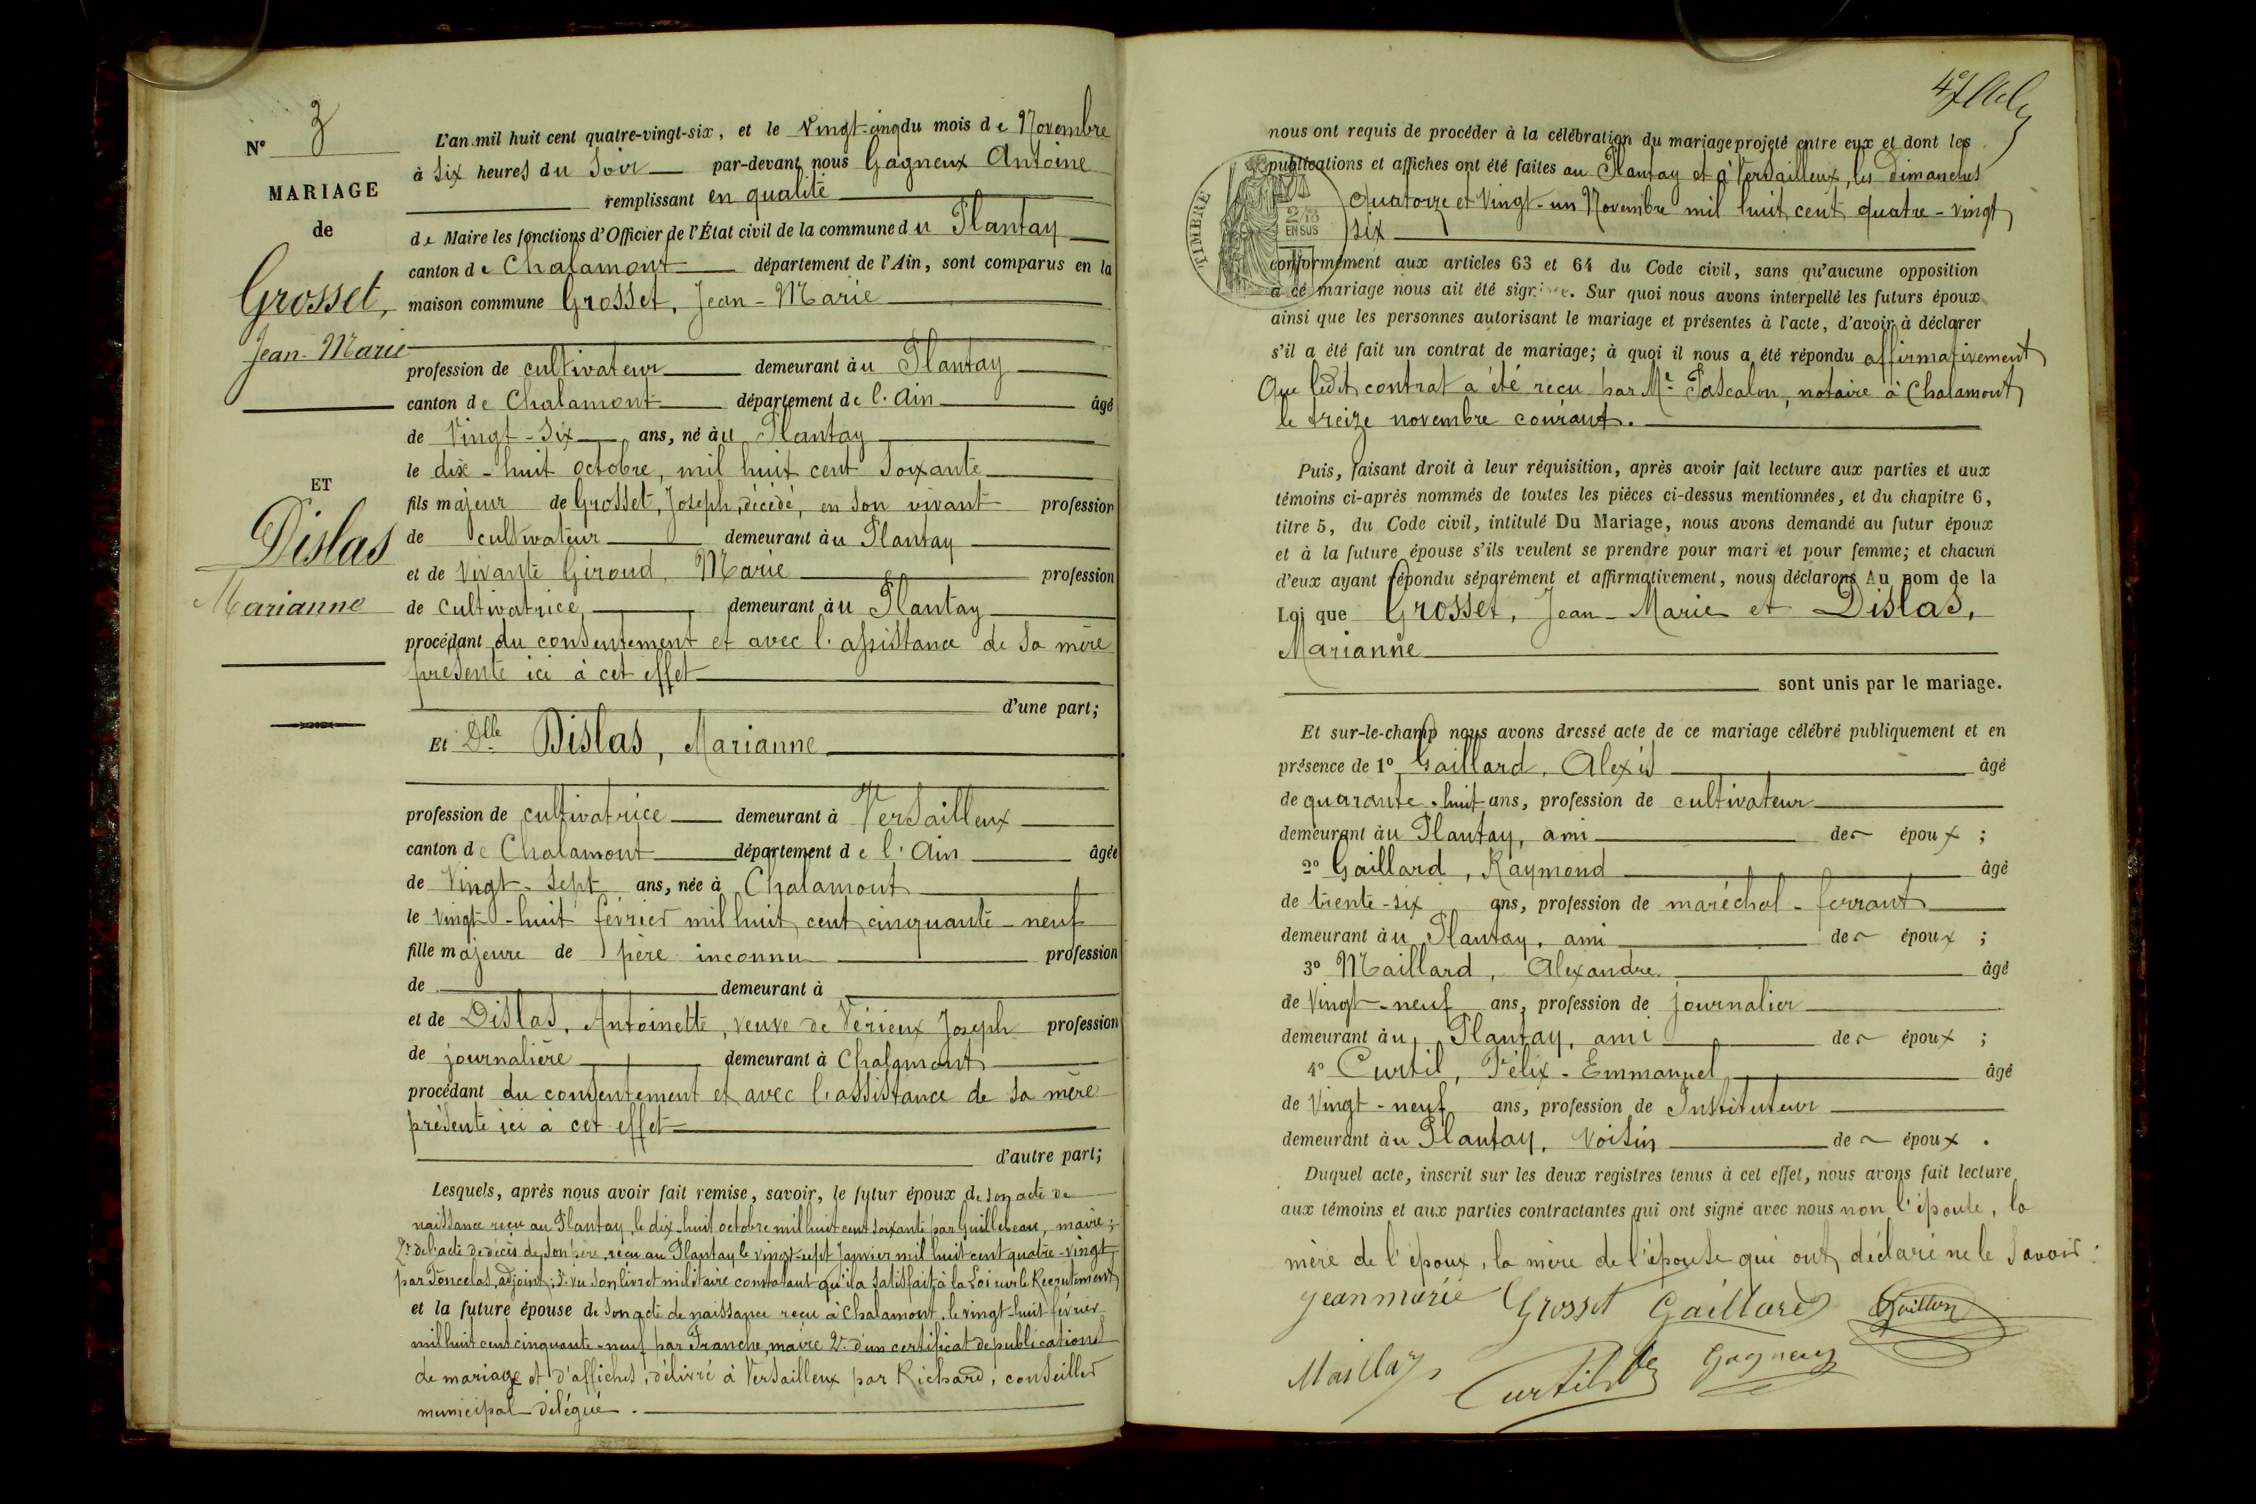 N° 3
MARIAGE
de
Grosset,
Jean-Marie
ET
Dislas
Marianne
L'an mil huit cent quatre-vingt-six, et le vingt-cinq du mois de Novembre
à six heures du Soir par-devant nous Gagneux Antoine
remplissant en qualité
de Maire les fonctions d'Officier de l'État civil de la commune du Plantay
canton de Chalamont département de l'Ain, sont comparus en la
maison commune Grosset, Jean-Marie
profession de cultivateur demeurant au Plantay
canton de Chalamont département de l'Ain âgé
de Vingt-Six ans, né au Plantay
le dix-huit octobre, mil huit cent Soixante
fils majeur de Grosset, Joseph, décédé, en son vivant profession
de cultivateur demeurant au Plantay
et de vivante Giroud, Marie profession
de cultivatrice demeurant au Plantay
procédant du consentement et avec l'assistance de sa mère
présente ici à cet effet
d'une part;
Et Dlle Dislas, Marianne
profession de cultivatrice demeurant à Versailleux
canton de Chalamont département de l'Ain âgée
de Vingt-Sept ans, née à Chalamont
le vingt-huit février mil huit cent cinquante-neuf
fille majeure de père inconnu profession
de demeurant à
et de Dislas, Antoinette, veuve de Vérieux Joseph profession
de journalière demeurant à Chalamont
procédant du consentement et avec l'assistance de sa mère
présente ici à cet effet
d'autre part;
Lesquels, après nous avoir fait remise, savoir, le futur époux de son acte de
naissance reçu au Plantay, le dix-huit octobre mil huit cent soixante par Guillebeau, maire;
2° de l'acte de décès de son père, reçu au Plantay le vingt-sept Janvier mil huit cent quatre-vingt
par Poncelas, adjoint; 3° vu son livret militaire constatant qu'il a satisfait à la Loi sur le Recrutement
et la future épouse de son acte de naissance reçu à Chalamont, le vingt-huit février
mil huit cent cinquante-neuf par Franche, maire 2° d'un certificat de publications
de mariage et d'affiches, délivré à Versailleux par Richard, conseiller
municipal délégué.
nous ont requis de procéder à la célébration du mariage projeté entre eux et dont les
publications et affiches ont été faites au Plantay et à Versailleux, les Dimanches
quatorze et Vingt-un Novembre mil huit cent quatre-vingt
six
TIMBRE
2/10
EN SUS
conformément aux articles 63 et 64 du Code civil, sans qu'aucune opposition
à ce mariage nous ait été signifiée. Sur quoi nous avons interpellé les futurs époux
ainsi que les personnes autorisant le mariage et présentes à l'acte, d'avoir à déclarer
s'il a été fait un contrat de mariage; à quoi il nous a été répondu affirmativement
Que ledit contrat a été reçu par Me Pascalon, notaire à Chalamont
le treize novembre courant.
Puis, faisant droit à leur réquisition, après avoir fait lecture aux parties et aux
témoins ci-après nommés de toutes les pièces ci-dessus mentionnées, et du chapitre 6,
titre 5, du Code civil, intitulé Du Mariage, nous avons demandé au futur époux
et à la future épouse s'ils veulent se prendre pour mari et pour femme; et chacun
d'eux ayant répondu séparément et affirmativement, nous déclarons Au nom de la
Loi que Grosset, Jean-Marie et Dislas,
Marianne
sont unis par le mariage.
Et sur-le-champ nous avons dressé acte de ce mariage célébré publiquement et en
présence de 1° Gaillard, Alexis âgé
de quarante-huit ans, profession de cultivateur
demeurant au Plantay, ami des époux ;
2° Gaillard, Raymond âgé
de trente-six ans, profession de maréchal-ferrant
demeurant au Plantay, ami des époux ;
3° Maillard, Alexandre âgé
de Vingt-neuf ans, profession de journalier
demeurant au Plantay, ami des époux ;
4° Curtil, Félix-Emmanuel âgé
de Vingt-neuf ans, profession de Instituteur
demeurant au Plantay, voisin des époux .
Duquel acte, inscrit sur les deux registres tenus à cet effet, nous avons fait lecture
aux témoins et aux parties contractantes qui ont signé avec nous non l'épouse, la
mère de l'époux, la mère de l'épouse qui ont déclaré ne le Savoir.
jean marie Grosset Gaillard
Curtil Gagneux